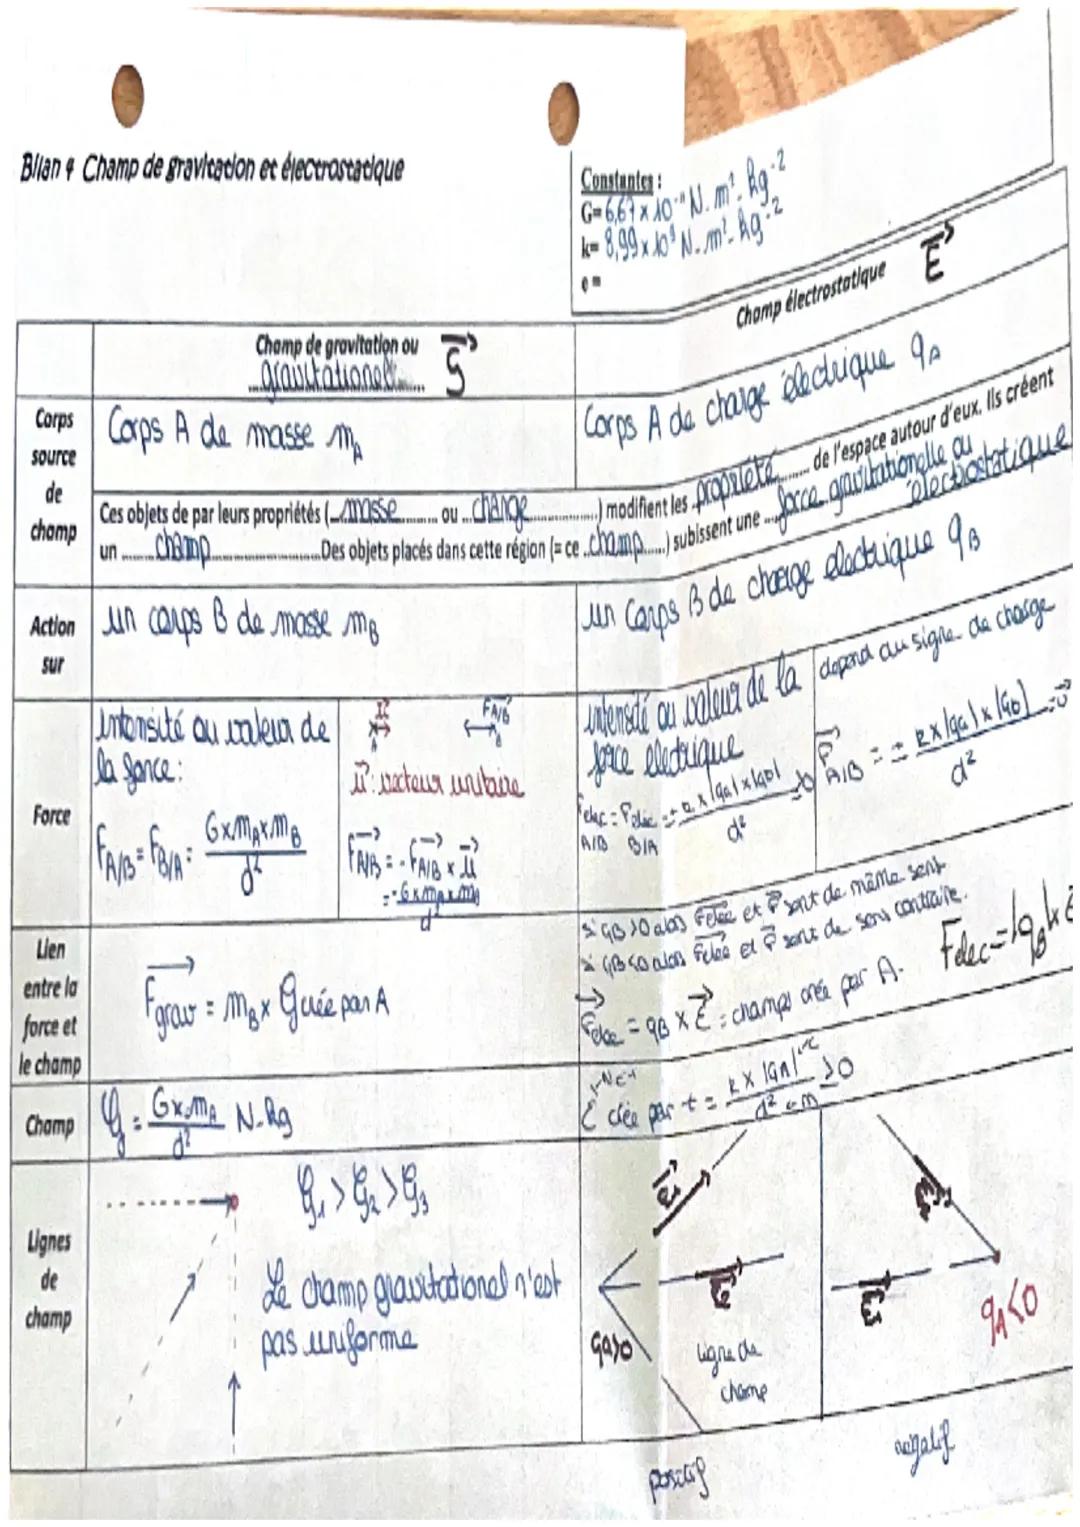 Bilan 4 Champ de gravitation et électrostatique
Constantes :
G= 6,67 x 10⁻¹¹ N. m². kg⁻²
k= 8,99 x 10⁹ N. m². kg⁻²
e =
Champ de gravitation ou
gravitationnel
Champ électrostatique E⃗
Corps source de champ
Corps A de masse mA
Corps A de charge électrique qA
Ces objets de par leurs propriétés ( masse ou charge ) modifient les propriété de l'espace autour d'eux. Ils créent
un champ Des objets placés dans cette région (= ce champ ) subissent une force gravitationelle ou
électrostatique
Action sur
un corps B de masse mB
un Corps B de charge electrique qB
Force
intensité ou valeur de
la force:
FA/B = FB/A = G x mA x mB / d²
u⃗
A
F⃗A/B
B
u⃗ : vecteur unitaire
F⃗A/B = - F⃗A/B x u⃗
= - G x mA x mB / d²
intensité ou valeur de la
force electrique
Felec = Felec = + k x |qa| x |qb| / d²
A/B B/A
depend au signe de charge
F⃗A/B = ± k x |qa| x |qb| / d² u⃗
Lien entre la force et le champ
F⃗grav = mB x G créée par A
si qB >0 alors F⃗elec et E⃗ sont de même sens
si qB <0 alors F⃗elec et E⃗ sont de sens contraire.
F⃗elec = qB x E⃗ : champs crée par A.
Felec = |qB| x E
Champ
G = G x mA / d² N.kg
E crée par = k x |qA| / d² ≥ 0
Lignes de champ
G₁ > G₂ > G₃
Le champ gravitationel n'est
pas uniforme
E⃗₁
E⃗₂
qa>0
ligne de
champ
positif
E⃗₁
qA<0
negatif